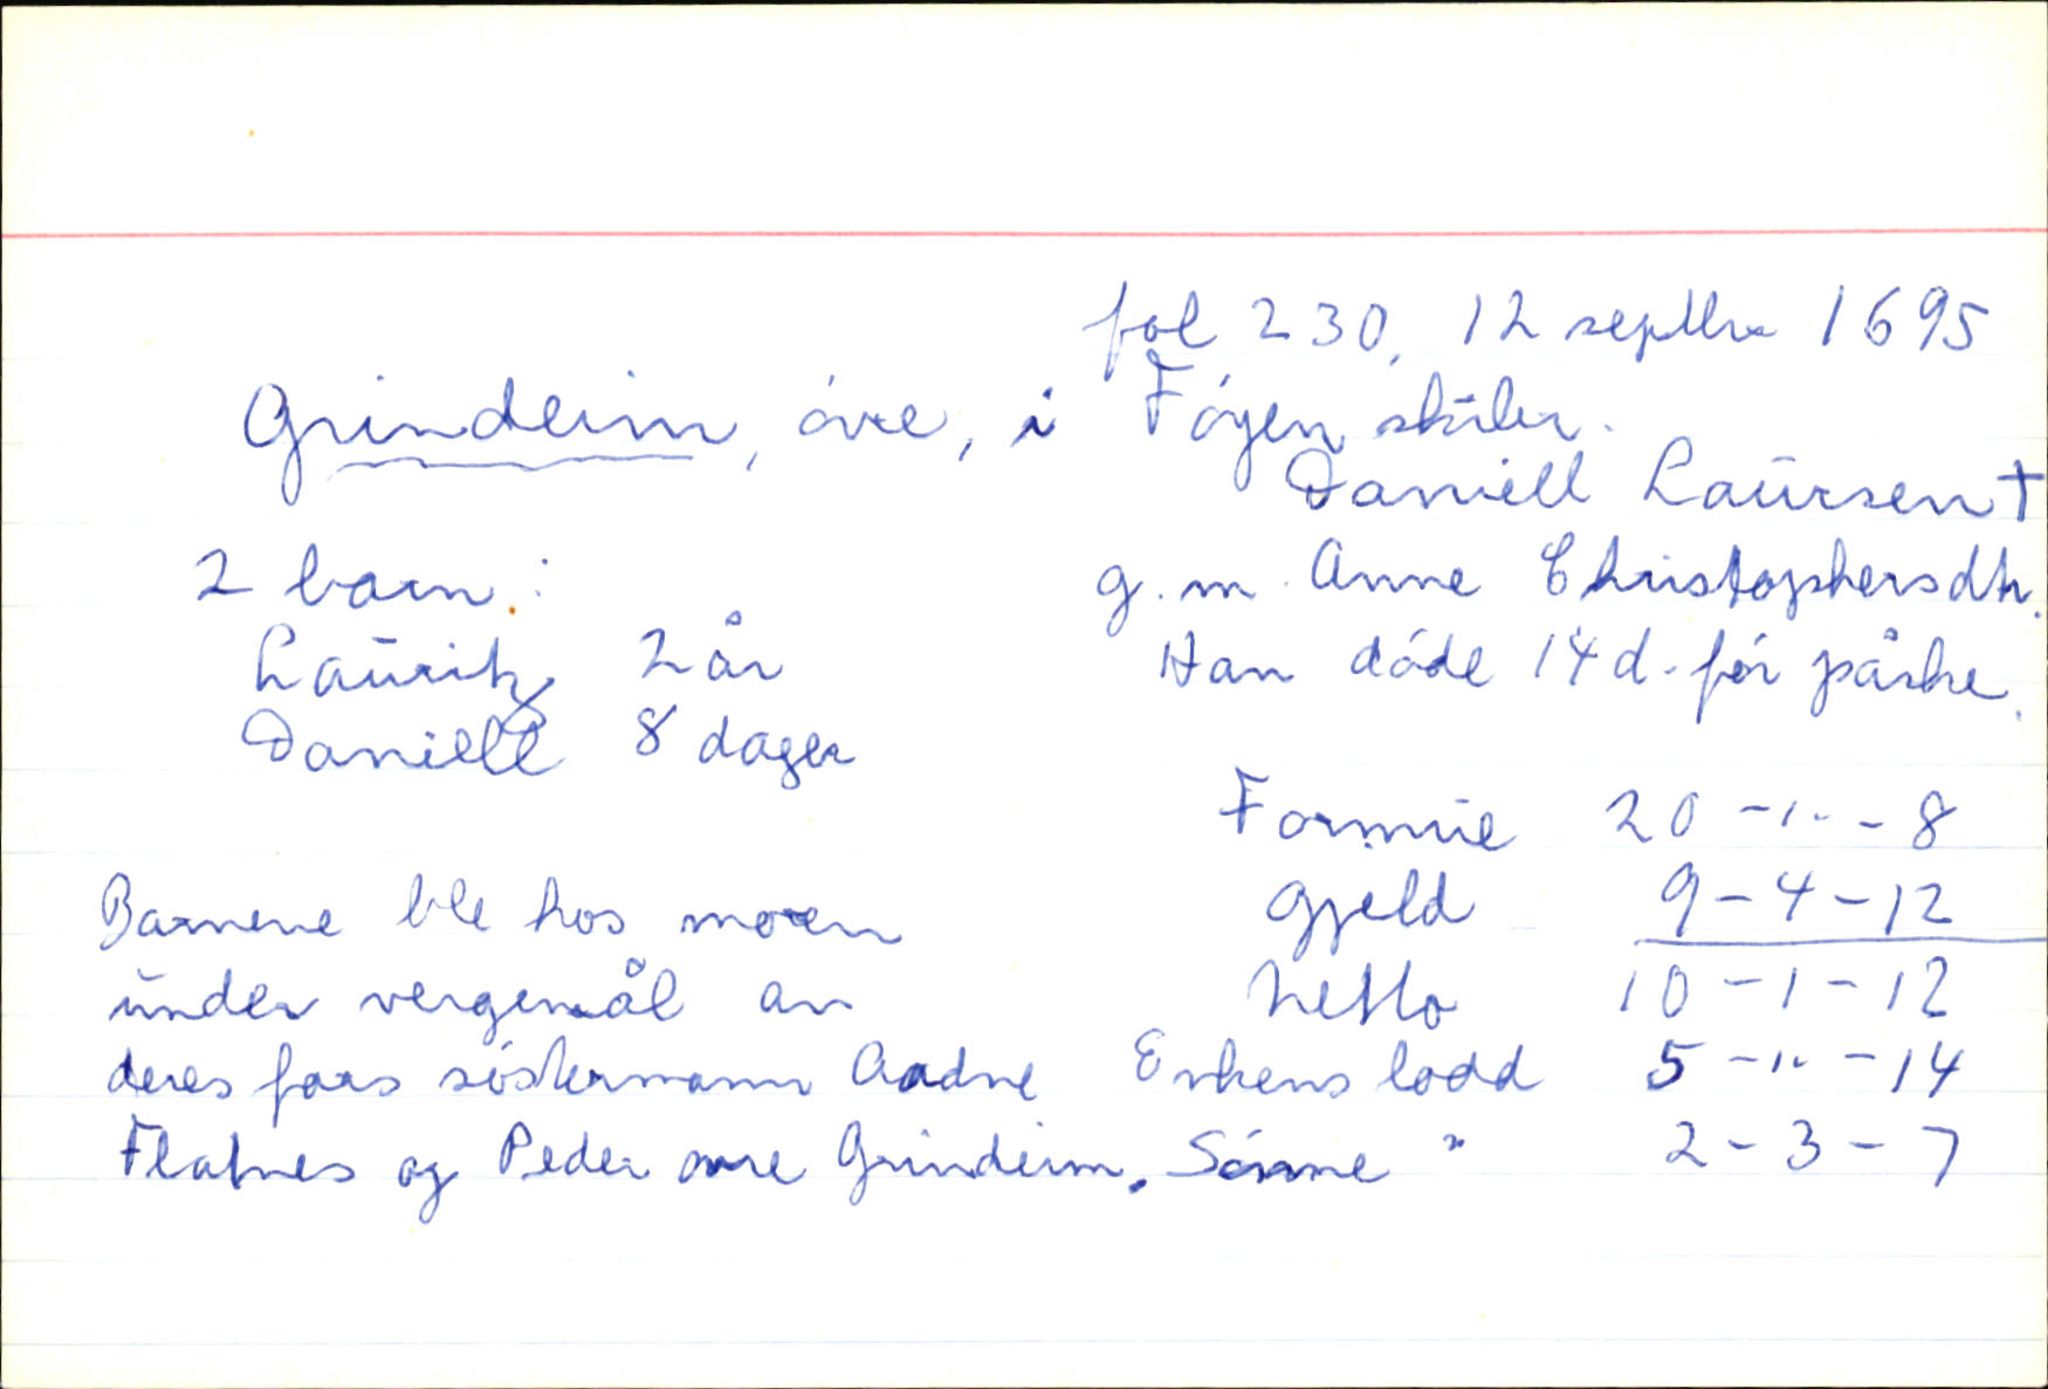 fol 230, 12 septbr 1695
Grindeim, övre, i Föyen skibr.
Daniell Laursen †
2 barn: g. m. Anne Christophersdtr.
Lauritz 2 år Han döde 14 d. før påske.
Daniell 8 dager
Formue 20 - " - 8
Barnene ble hos moren Gjeld 9 - 4 - 12
under vergemål av Netto 10 - 1 - 12
deres fars söstermann Aadne Enkens lodd 5 - " - 14
Flatnes og Peder övre Grindeim. Sönne " 2 - 3 - 7